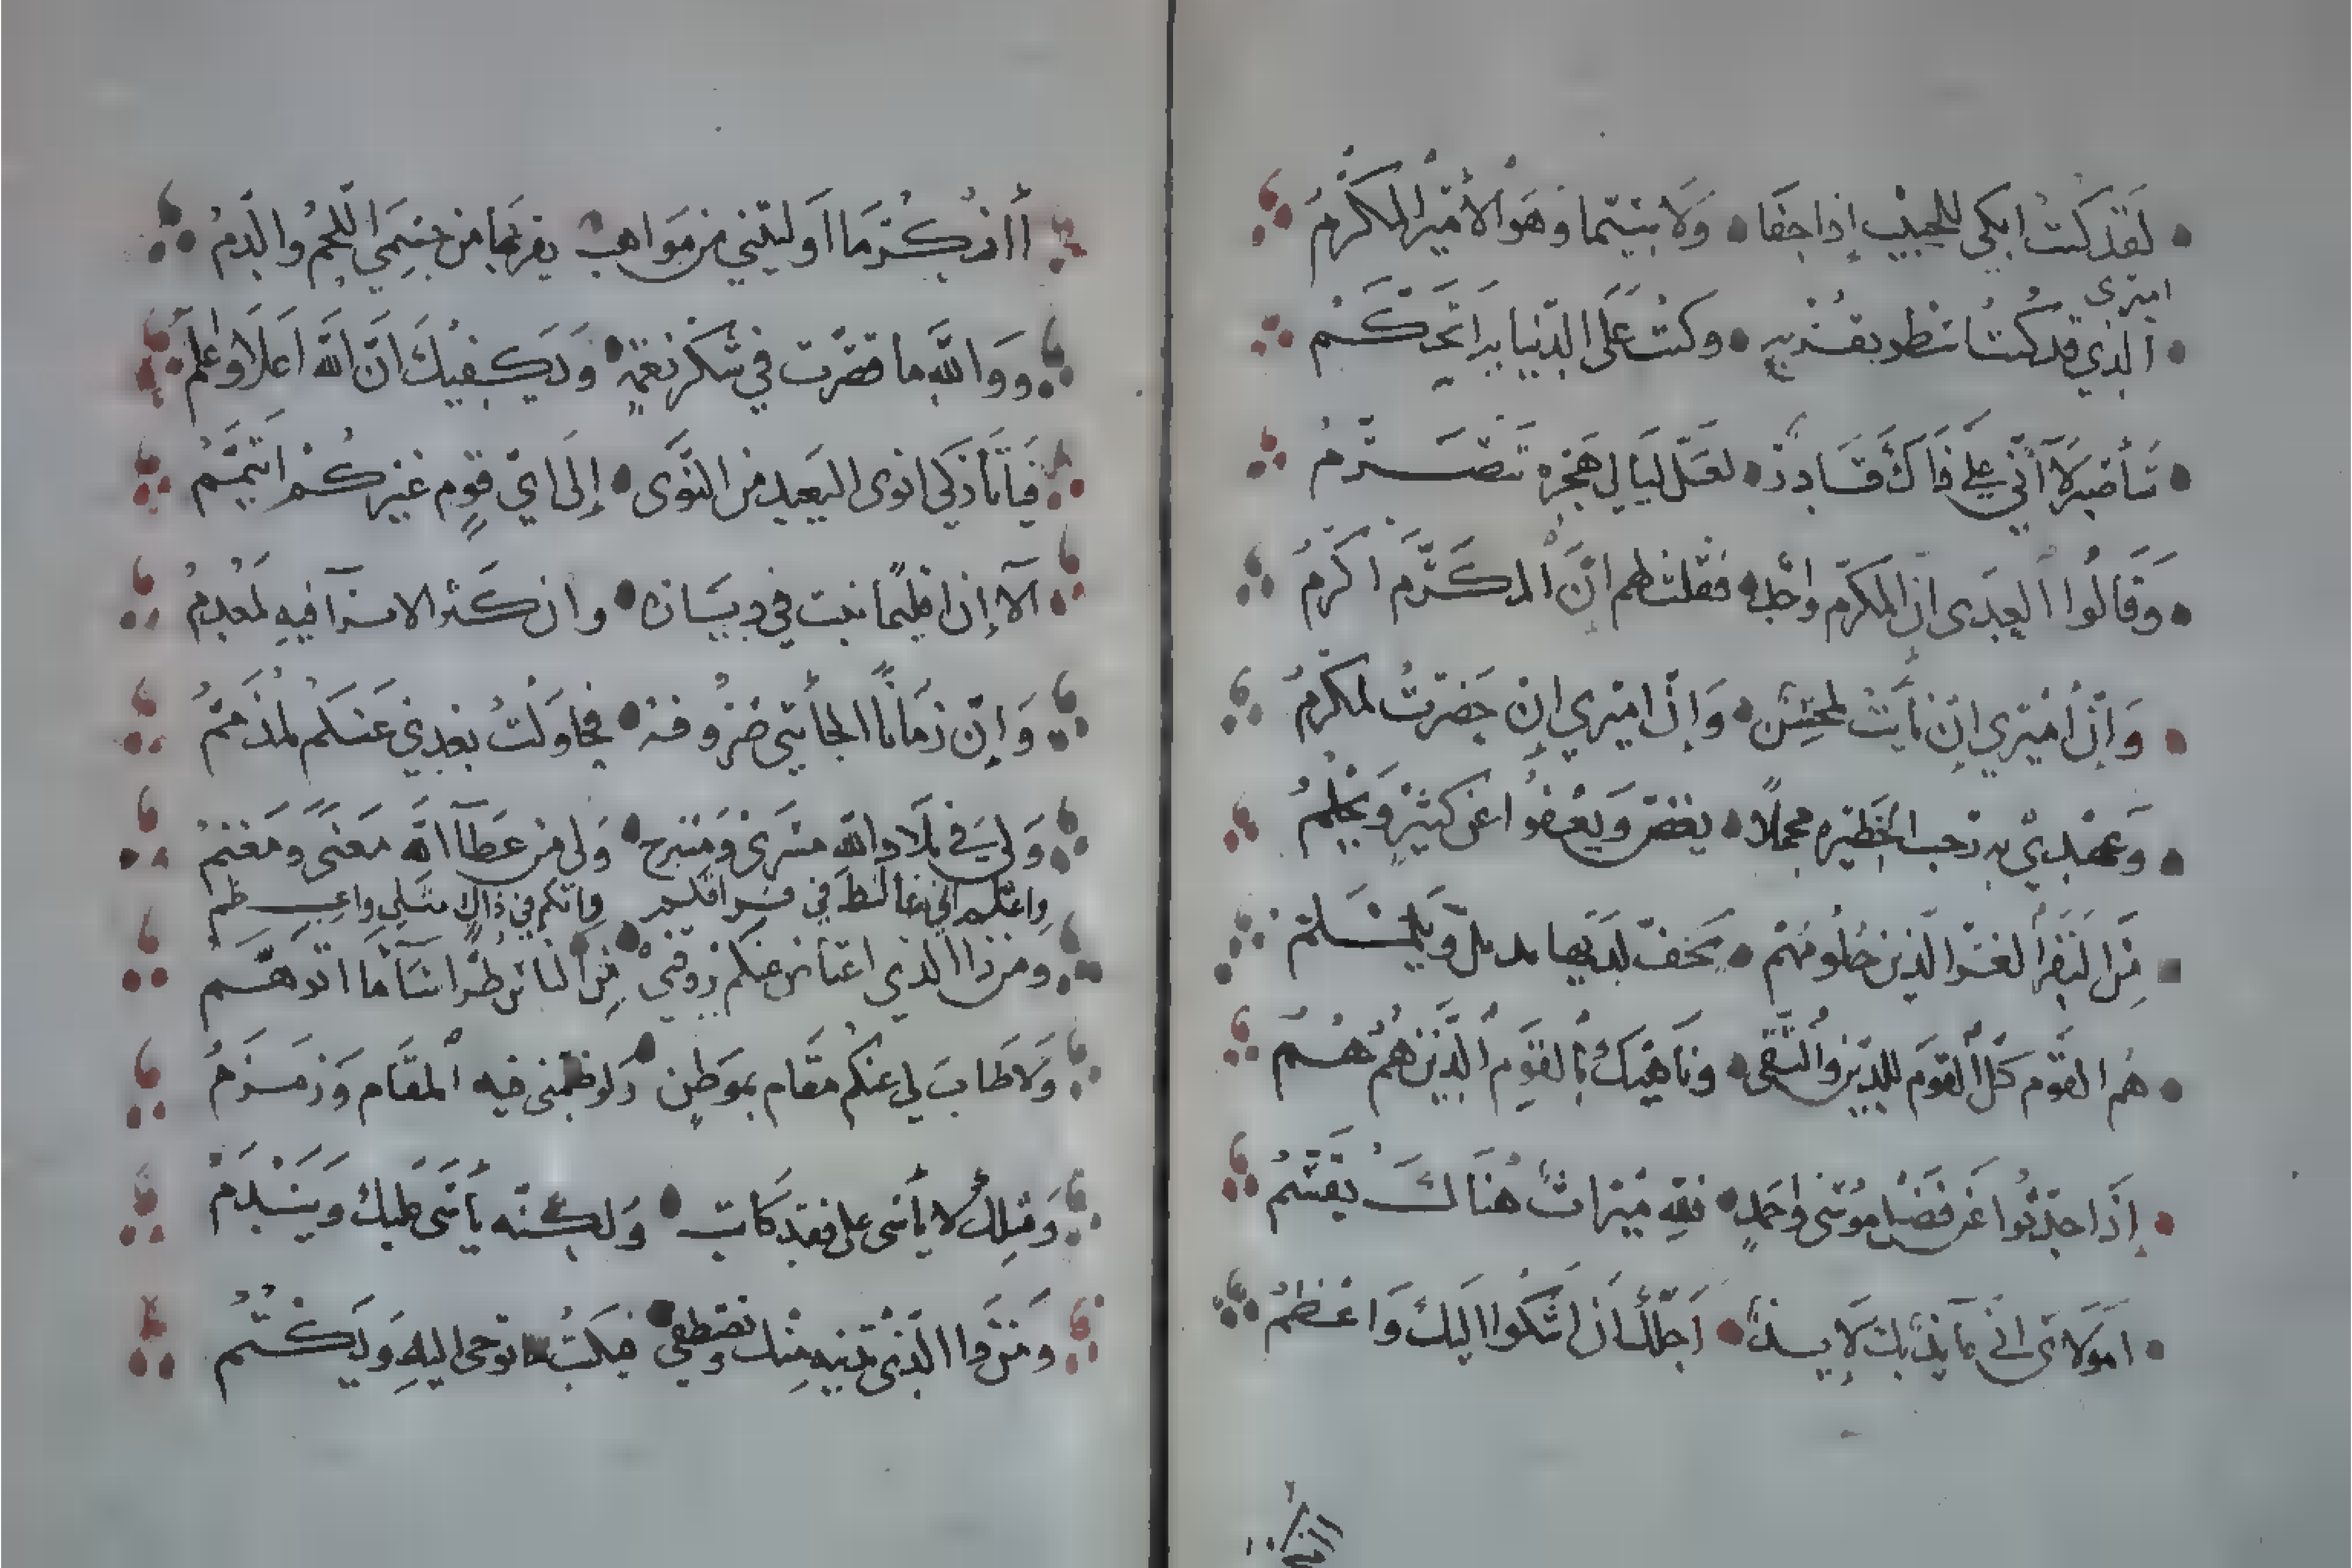 لَقَد كنتُ ابكي للحبيب إذا جَفَا وَلَا سِيَّما وهَو الأمير المكَرَّمُ
اميري
الذي قد كنتُ اسطو بقربه وكنتُ عَلَى الدّنيا به اتَحَكَّم
سَأصْبِر لَا أنّي عَلَى ذَاكَ قَادِرٌ لعَلّ ليَالي هَجْرِه تَتَصَرَّمُ
وَقَالُوا العِدَى ان المكرّم واجدٌ فقلت لهم انّ المكَرَّم اكرَمُ
وَإنّ أميري إن نَأيتُ لمحْسِن وَإنّ اميري إنْ حَضَرتُ لمكرمُ
وَعَهْدِي به رَحب الحَظيره مجملًا يغض وَيَعْفُو عن كثيرٍ وَيحْلمُ
مِنَ النَفَر الغُرّ الذين حُلُومُهُمْ يَخفّ لَدَيها يذبل ويلملمُ
هُم القَوم كلّ القَوم للدّين والتُّقَى ونَاهيْكَ بالقَومِ الّذين هُمُ هُمُ
إذَا حدّثُوا عَن فَضْل مُوسَى وَاحمدٍ ففِيه ميرَاثٌ هنَاكَ يقسَّمُ
امَولَاي اني عَائذٌ بك لَا يذٌ اجلّكَ أن اشكُوا اليكَ وَاعْظمُ
أأنْكُر مَا اَوليتَني من مَوَاهبٍ يقرّ بهَا من جِسْمي اللّحمُ والدَّمُ
وَوَاللهِ ما قصّرت في شكر نعمَةٍ وَيَكفيكَ انَّ اللَّهَ اَعلَا وَاعلمُ
فَيَا تَاركي انوى البَعيد من النّوَى إلَى ايّ قومٍ غيركُمْ اتَيَمَّمُ
ألَا إنّ اقليمًا نبت في ديَاره وان كثر الاثرآ فيه لمعْدِمُ
وَإنّ زمَانًا الجأتني صُرُوفه فحاوَلتُ بعدي عَنكم لمذَمَّمُ
وَلي في بلَاد الله مَسْرَى وَمَسْرح وَلي من عَطَآ اللَّه مَغْنًى وَمَغنمُ
واعلم اني غالط في فراقكم وانكم في ذاك مثلي واعظم
ومن ذا الذي اعتاض عنكم من النَّاس طرّا سَآءَ مَا اتوهّم
وَلَا طَابَ لي عنكم مقَام بموَطِنٍ وَلو ضمني فيه المقَام وَزمزَمُ
وَمثلكَ لا يأسَى على فقد كاتب وَلكنّه يأسَى عليك وَيَنْدَمُ
ومَن ذا الّذي تدنيه منك وتصطفي فيكتُبُ ما توحى اليهِ وَيَكتُمُ